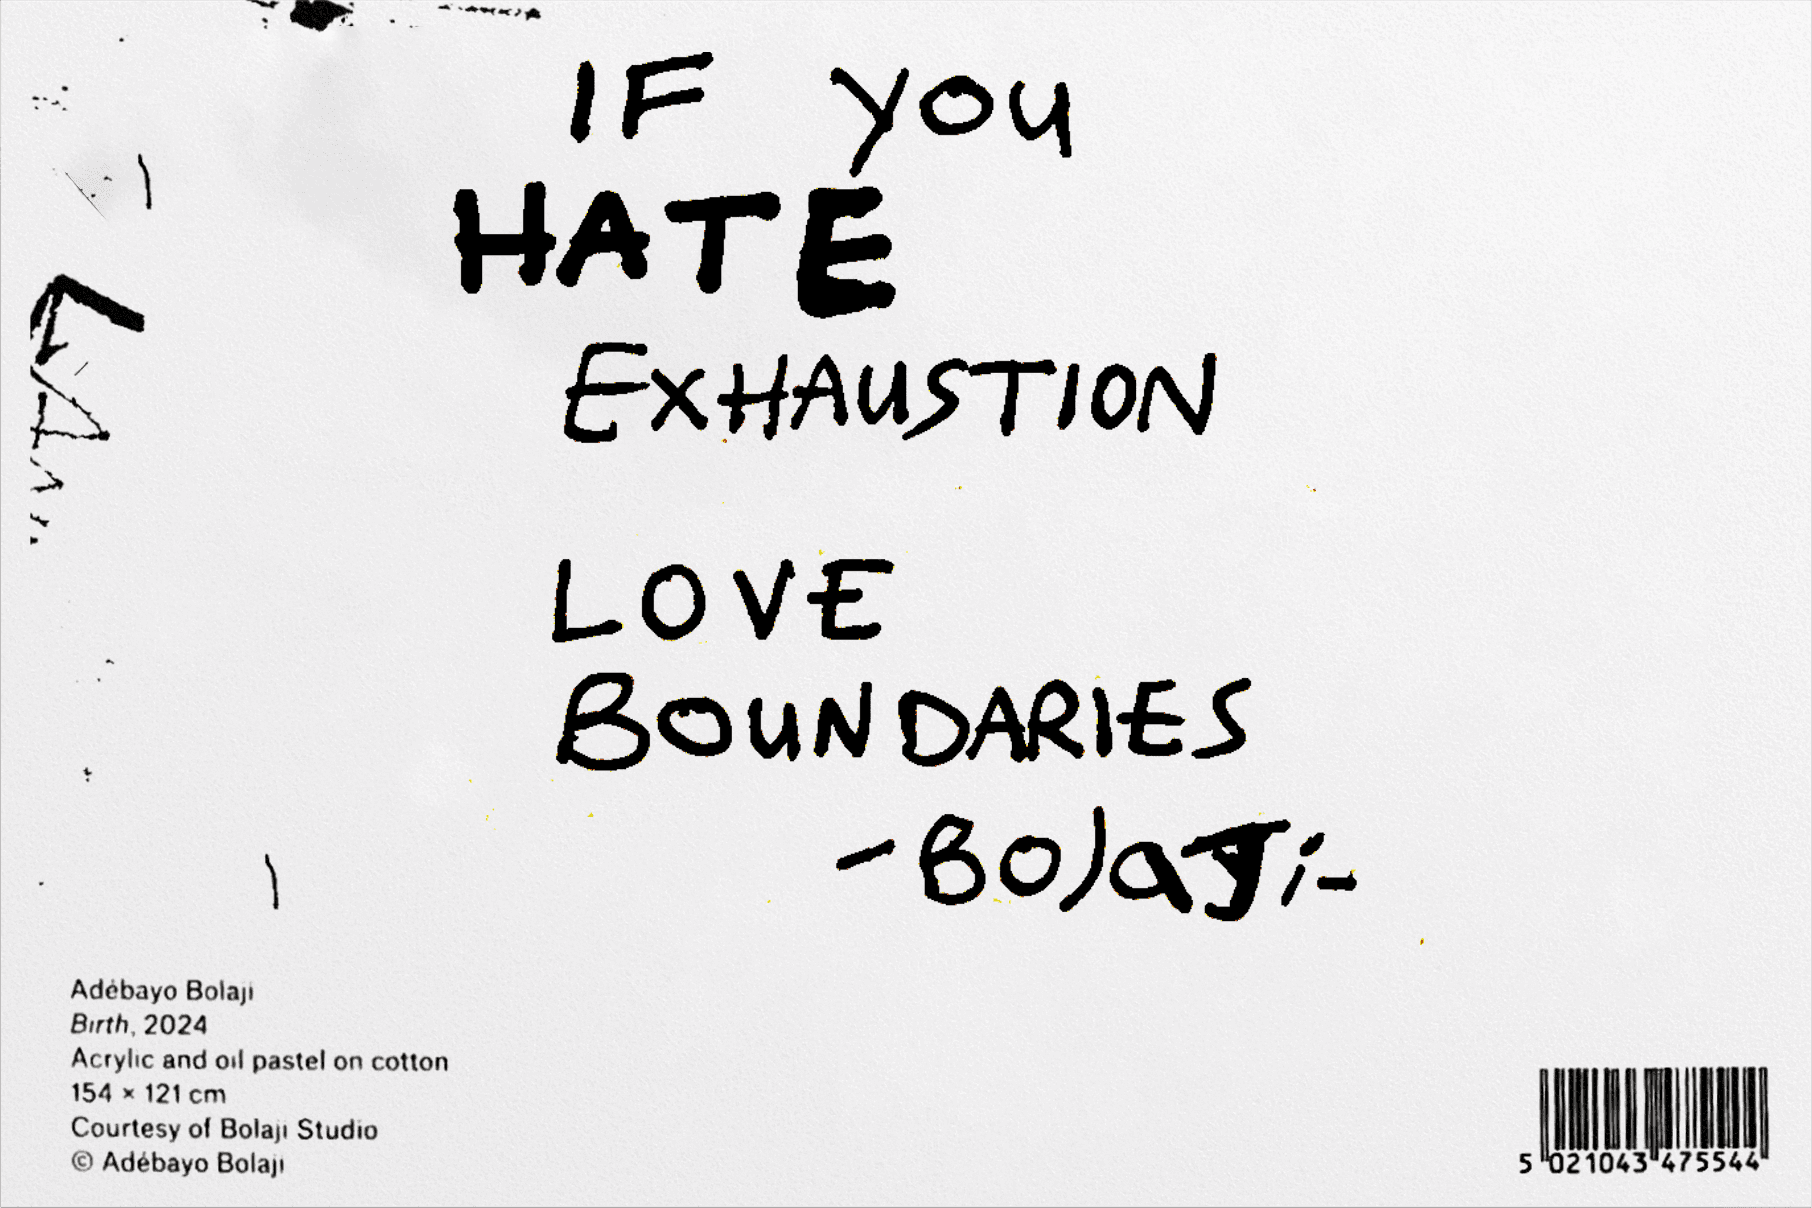 IF YOU
HATE
EXHAUSTION
LOVE
BOUNDARIES
- Bolaji -
Adébayo Bolaji
Birth, 2024
Acrylic and oil pastel on cotton
154 × 121 cm
Courtesy of Bolaji Studio
© Adébayo Bolaji
5 021043 475544